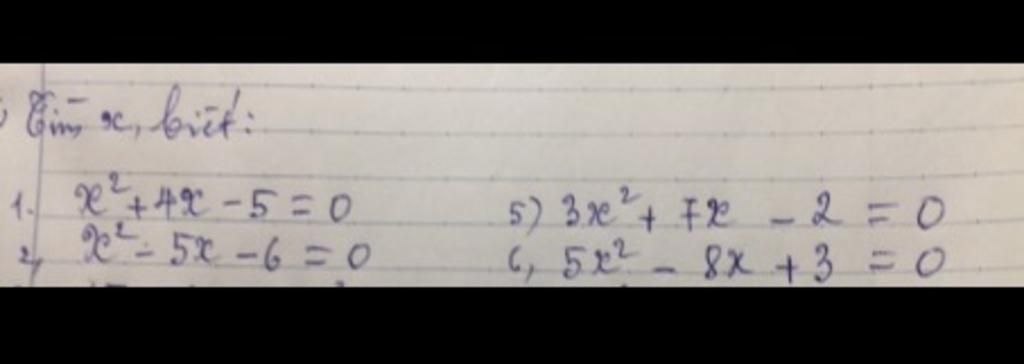 Tìm x, biết:
1. x² + 4x - 5 = 0
2, x² - 5x - 6 = 0
5) 3x² + 7x - 2 = 0
6, 5x² - 8x + 3 = 0